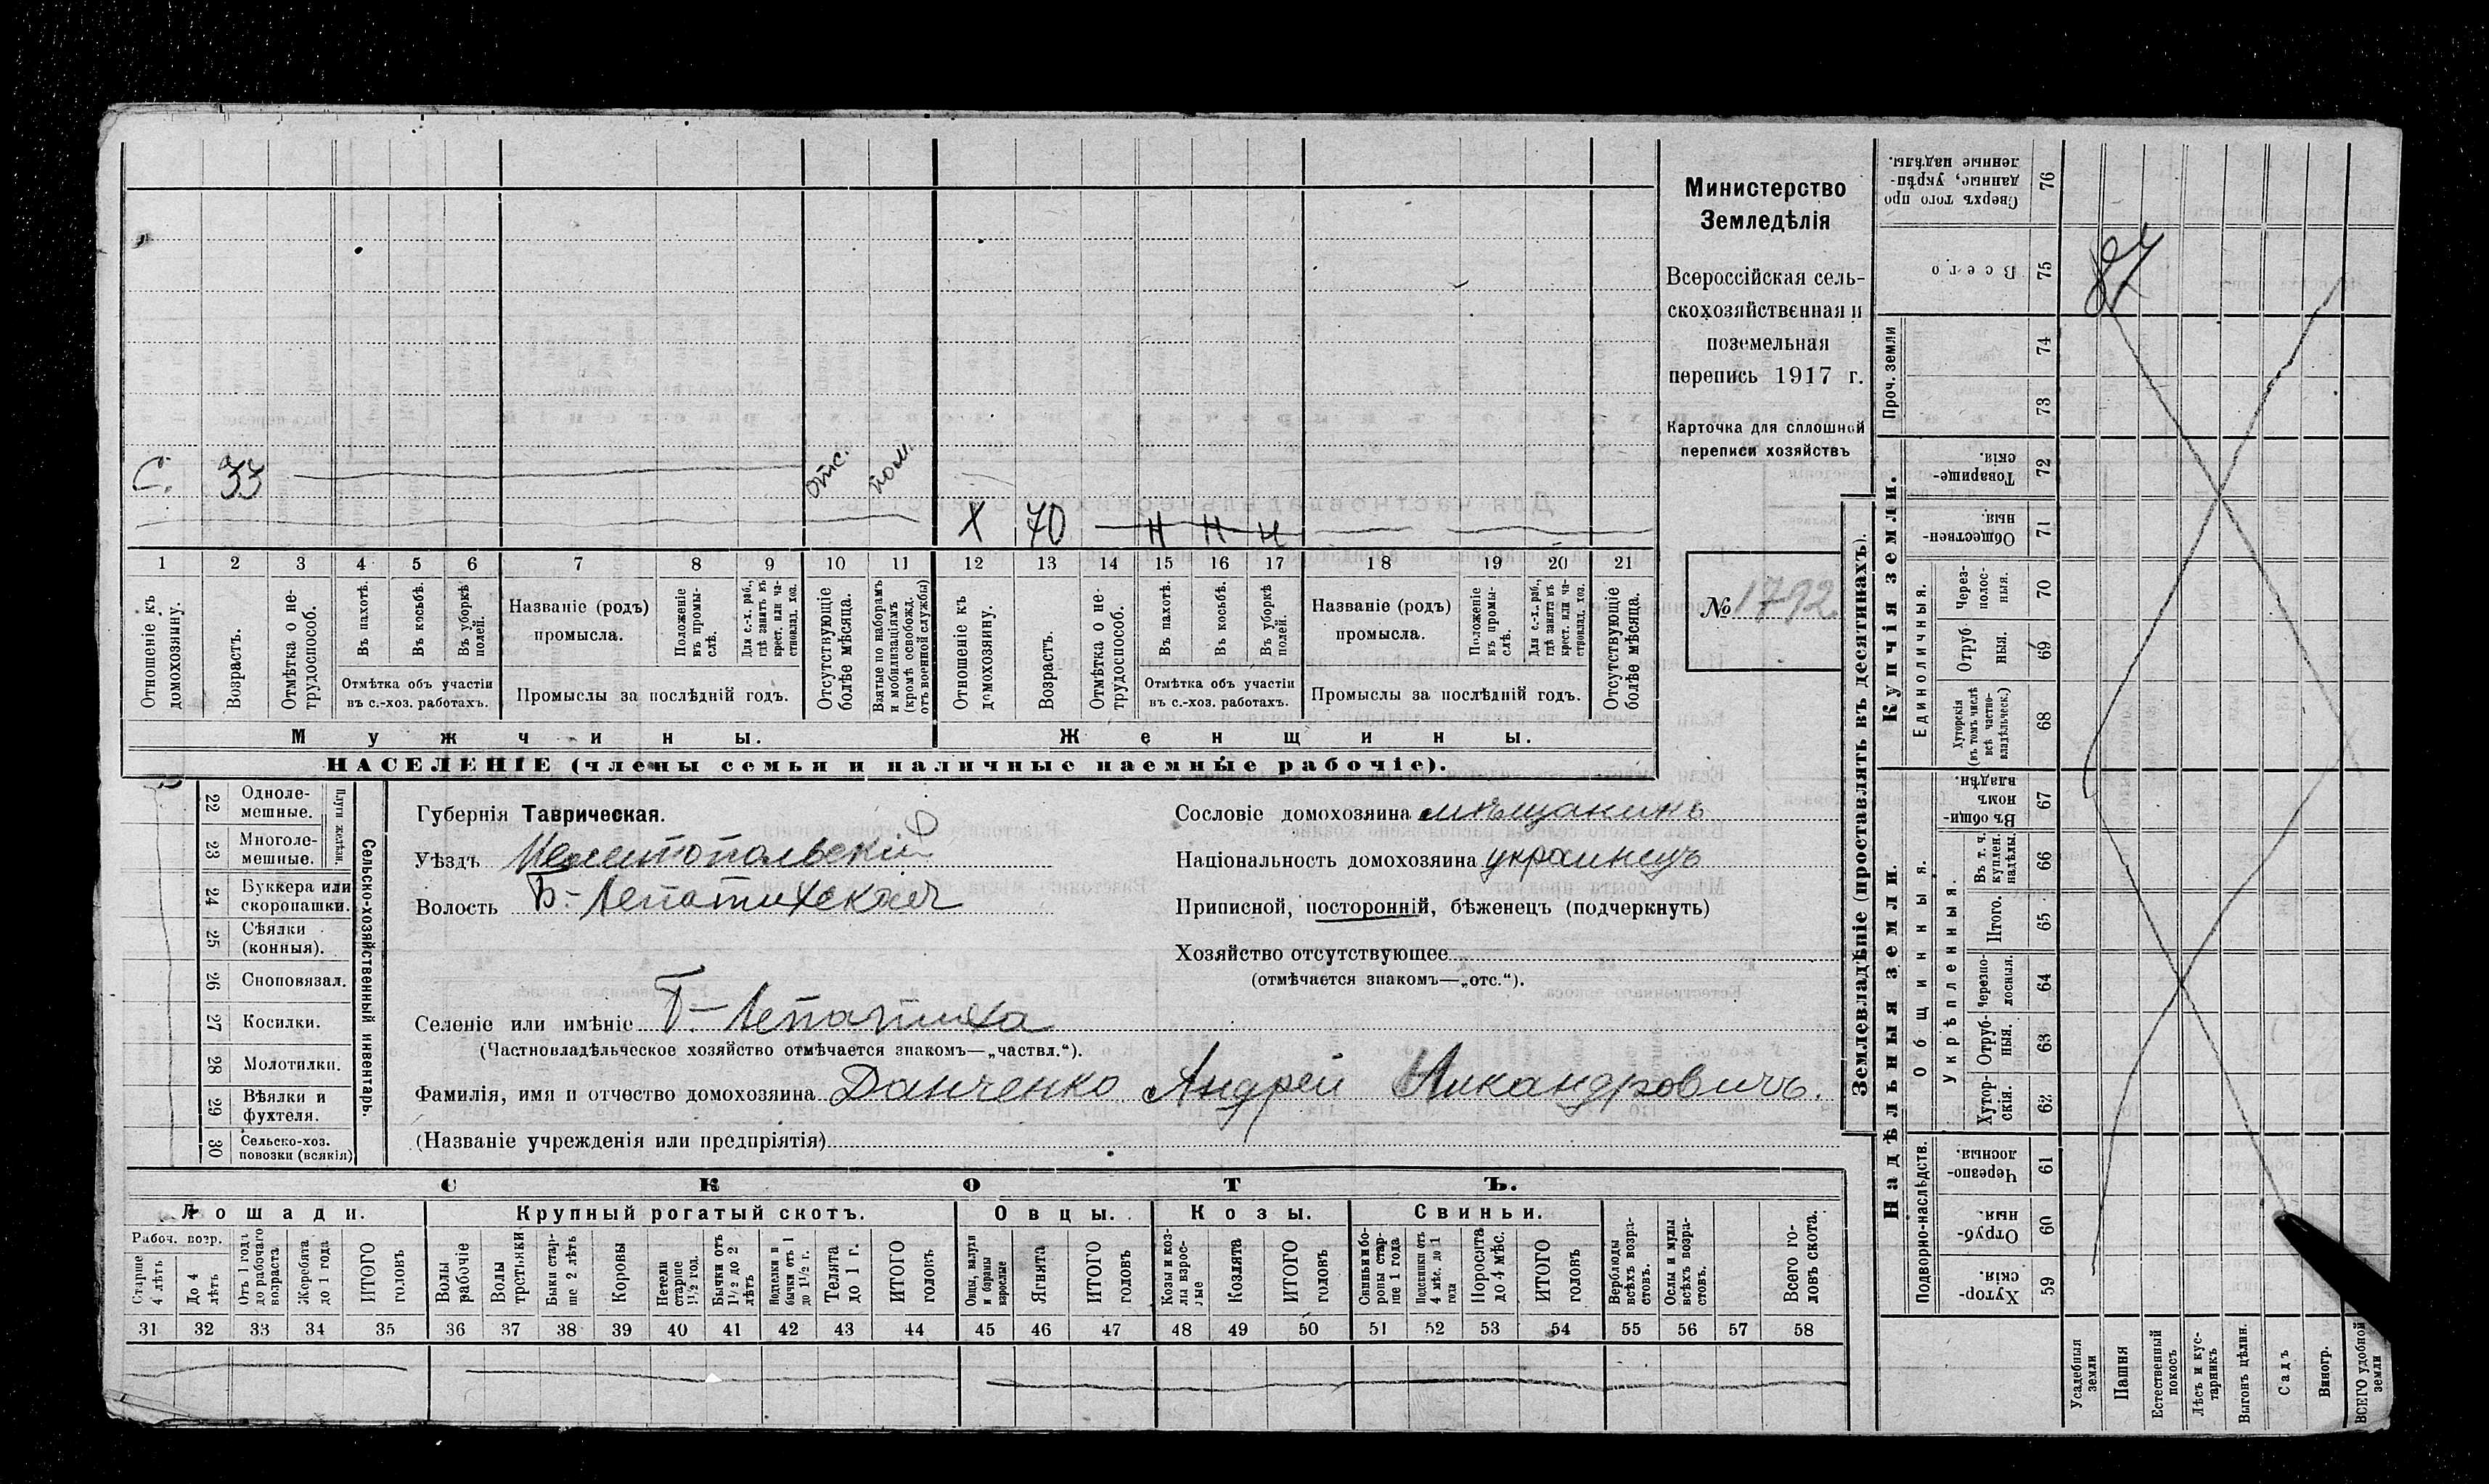 Министерство
Земледѣлія
Всероссійская сель-
скохозяйственная и
поземельная
перепись 1917 г.
Карточка для сплошной
переписи хозяйствъ
№ 1792
С. 33 отс. пом.
Х 70 Н Н Н
1 2 3 4 5 6 7 8 9 10 11 12 13 14 15 16 17 18 19 20 21
Отношеніе къ домохозяину.
Возрастъ.
Отмѣтка о не-трудоспособ.
Въ пахотѣ.
Въ косьбѣ.
Въ уборкѣ полей.
Отмѣтка объ участіи
въ с.-хоз. работахъ.
Названіе (родъ)
промысла.
Положеніе въ промы-слѣ.
Для с.-х. раб., гдѣ занятъ въ крест. или ча-стновлад. хоз.
Промыслы за послѣдній годъ.
Отсутствующіе болѣе мѣсяца.
Взятые по наборамъ и мобилизаціямъ (кромѣ освобожд. отъ военной службы)
Отношеніе къ домохозяину.
Возрастъ.
Отмѣтка о не-трудоспособ.
Въ пахотѣ.
Въ косьбѣ.
Въ уборкѣ полей.
Отмѣтка объ участіи
въ с.-хоз. работахъ.
Названіе (родъ)
промысла.
Положеніе въ промы-слѣ.
Для с.-х. раб., гдѣ занята въ крест. или ча-стновлад. хоз.
Промыслы за послѣдній годъ.
Отсутствующіе болѣе мѣсяца.
Мужчины.
Женщины.
НАСЕЛЕНІЕ (члены семьи и наличные наемные рабочіе).
22 Одноле-мешные.
23 Многоле-мешные.
Плуги желѣзн.
24 Буккера или скоропашки.
25 Сѣялки (конныя).
26 Сноповязал.
27 Косилки.
28 Молотилки.
29 Вѣялки и фухтеля.
30 Сельско-хоз. повозки (всякія)
Сельско-хозяйственный инвентарь.
Губернія Таврическая.
Уѣздъ Мелитопольскій
Волость Б.-Лепатихская
Селеніе или имѣніе Б.-Лепатиха
(Частновладѣльческое хозяйство отмѣчается знакомъ—„частвл.“).
Фамилія, имя и отчество домохозяина Данченко Андрей Никандровичъ.
(Названіе учрежденія или предпріятія)
Сословіе домохозяина мѣщанинъ
Національность домохозяина украинецъ
Приписной, посторонній, бѣженецъ (подчеркнуть)
Хозяйство отсутствующее
(отмѣчается знакомъ—„отс.“).
СКОТЪ.
Лошади. Крупный рогатый скотъ. Овцы. Козы. Свиньи.
Рабоч. возр.
Старше 4 лѣтъ
До 4 лѣтъ
Отъ 1 года до рабочаго возраста
Жеребята до 1 года
ИТОГО головъ
Волы рабочіе
Волы третьяки
Быки стар-ше 2 лѣтъ
Коровы
Нетели старше 1½ год.
Бычки отъ 1½ до 2 лѣтъ
Подтелки и бычки отъ 1 до 1½ г.
Телята до 1 г.
ИТОГО головъ
Овцы, валухи и бараны взрослые
Ягнята
ИТОГО головъ
Козы и коз-лы взрос-лые
Козлята
ИТОГО головъ
Свиньи и бо-ровы стар-ше 1 года
Подсвинки отъ 4 мѣс. до 1 года
Поросята до 4 мѣс.
ИТОГО головъ
Верблюды всѣхъ возра-стовъ.
Ослы и мулы всѣхъ возра-стовъ.
Всего го-ловъ скота.
31 32 33 34 35 36 37 38 39 40 41 42 43 44 45 46 47 48 49 50 51 52 53 54 55 56 57 58
Землевладѣніе (проставлять въ десятинахъ).
Купчія земли.
Надѣльныя земли.
Сверхъ того про-данные, укрѣп-ленные надѣлы. 76
Всего 75
87
Проч. земли
74
73
Товарище-скія. 72
Обществен-ныя. 71
Единоличныя.
Через-полос-ныя. 70
Отруб-ныя. 69
Хуторскія (въ томъ числѣ всѣ частно-владѣльческ.) 68
Въ общи-номъ владѣн. 67
Общинныя.
Укрѣпленныя.
Въ т. ч. куплен. надѣлы. 66
Итого. 65
Черезпо-лосныя. 64
Отруб-ныя. 63
Хутор-скія. 62
Подворно-наслѣдств.
Черезпо-лосныя. 61
Отруб-ныя. 60
Хутор-скія. 59
Усадебныя земли
Пашня
Естественный покосъ
Лѣсъ и кус-тарникъ
Выгонъ цѣлин.
Садъ
Виногр.
ВСЕГО удобной земли